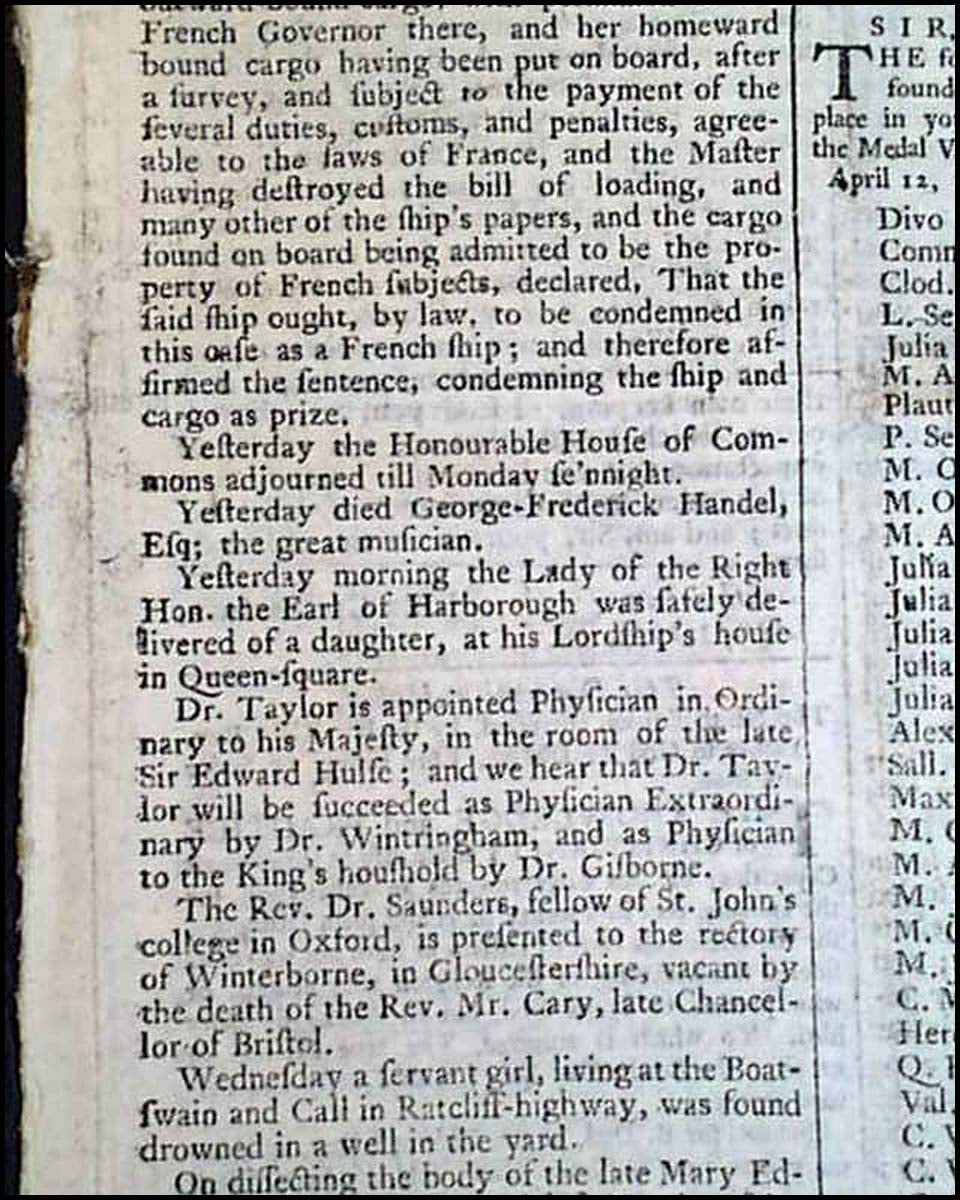 French Governor there, and her homeward
bound cargo having been put on board, after
a ſurvey, and ſubject to the payment of the
ſeveral duties, cuſtoms, and penalties, agree-
able to the laws of France, and the Maſter
having deſtroyed the bill of loading, and
many other of the ſhip's papers, and the cargo
found on board being admitted to be the pro-
perty of French ſubjects, declared, That the
ſaid ſhip ought, by law, to be condemned in
this caſe as a French ſhip; and therefore af-
firmed the ſentence, condemning the ſhip and
cargo as prize.
Yeſterday the Honourable Houſe of Com-
mons adjourned till Monday ſe'nnight.
Yeſterday died George-Frederick Handel,
Eſq; the great muſician.
Yeſterday morning the Lady of the Right
Hon. the Earl of Harborough was ſafely de-
livered of a daughter, at his Lordſhip's houſe
in Queen-ſquare.
Dr. Taylor is appointed Phyſician in Ordi-
nary to his Majeſty, in the room of the late
Sir Edward Hulſe; and we hear that Dr. Tay-
lor will be ſucceeded as Phyſician Extraordi-
nary by Dr. Wintringham, and as Phyſician
to the King's houſhold by Dr. Giſborne.
The Rev. Dr. Saunders, fellow of St. John's
college in Oxford, is preſented to the rectory
of Winterborne, in Glouceſterſhire, vacant by
the death of the Rev. Mr. Cary, late Chancel-
lor of Briſtol.
Wedneſday a ſervant girl, living at the Boat-
ſwain and Call in Ratcliff-highway, was found
drowned in a well in the yard.
On diſſecting the body of the late Mary Ed-
SIR,
THE
found
place in yo
the Medal V
April 12,
Divo
Comm
Clod.
L. Se
Julia
M. A
Plaut
P. Se
M. O
M. O
M. A
Julia
Julia
Julia
Julia
Julia
Alex
Sall.
Max
M.
M.
M.
M.
M.
C.
Her
Q.
Val.
C.
C.